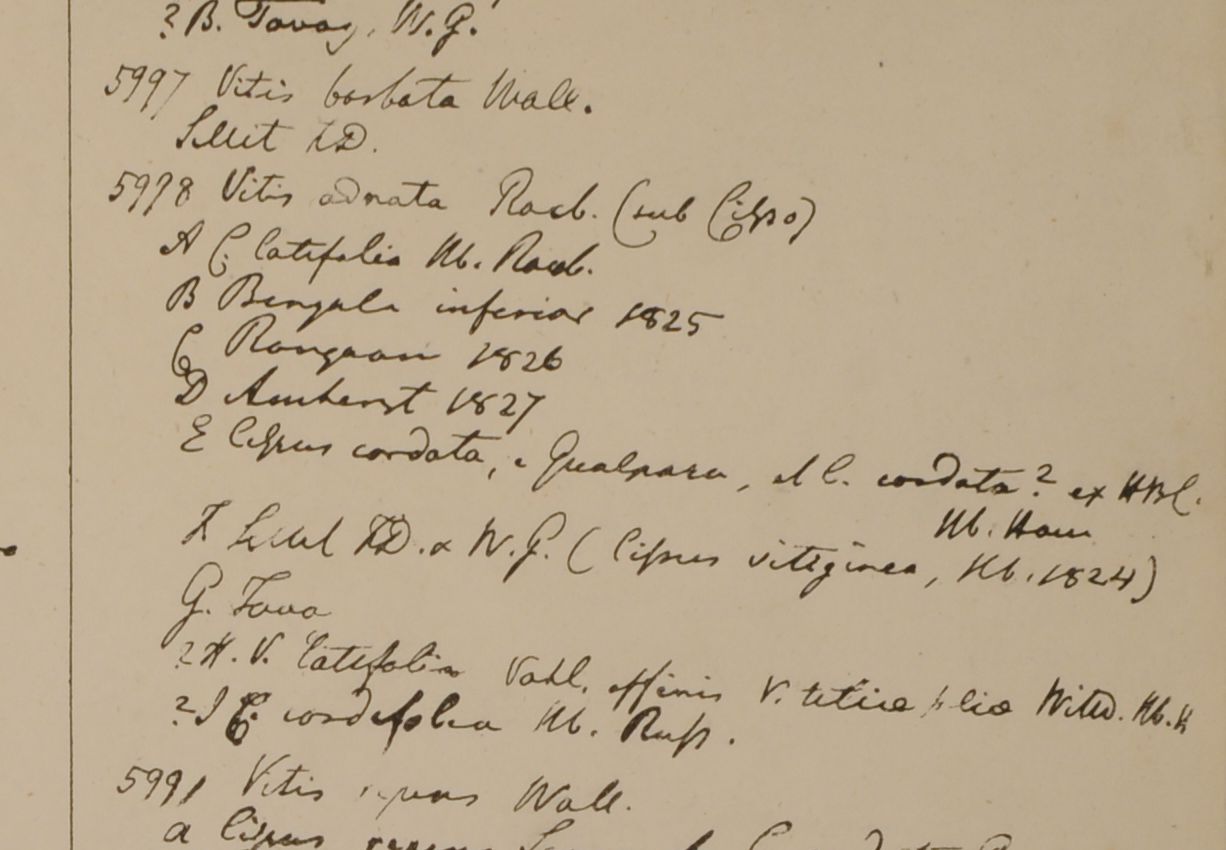 ? B. Tavoy, W.G.
5997 Vitis barbata Wall.
Sillet FD.
5998 Vitis adnata Roxb. (sub Cisso)
A C. latifolia Hb. Roxb.
B Bengala inferior 1825
C Rangoon 1826
D Amherst 1827
E Cissus cordata, e Gualpara, et C. cordata? ex HBC.
Hb. Ham
F Sillet FD. & W.G. (Cissus vitiginea, Hb. 1824)
G. Tavo
? H. V. latifolia Vahl. affinis V. Willd. Hb. H
? I C. cordifolia Hb. Russ.
5999 Vitis repens Wall.
a Cissus repens